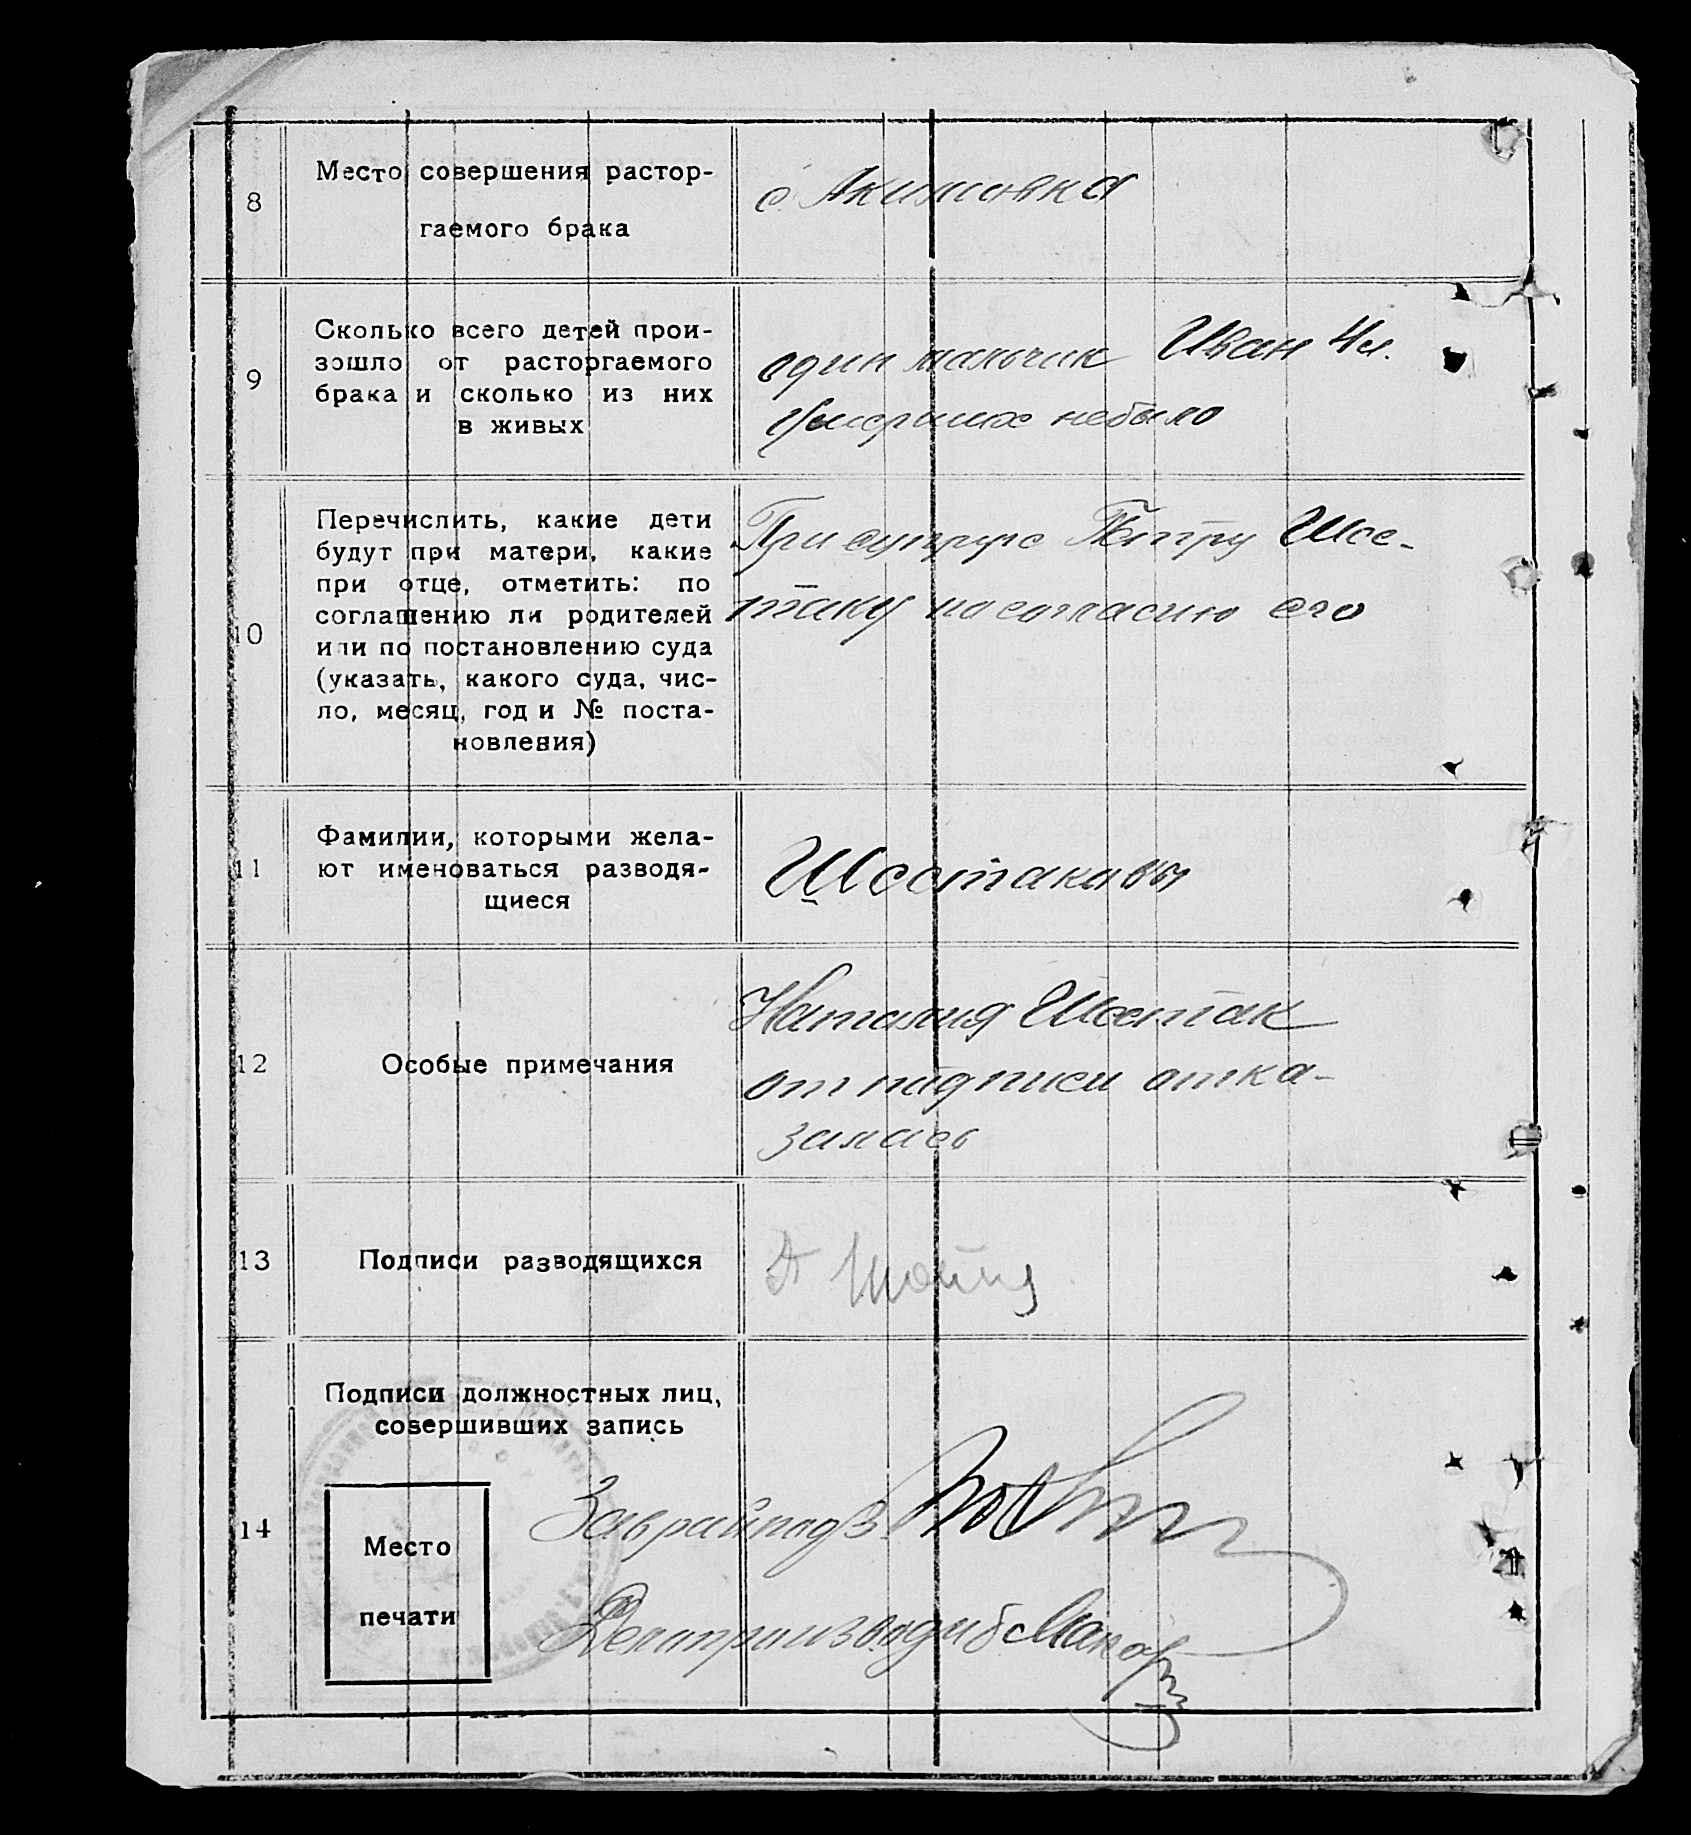 8
Место совершения растор-
гаемого брака
с. Акимовка
9
Сколько всего детей прои-
зошло от расторгаемого
брака и сколько из них
в живых
один мальчик Иван 4 л.
Умерших небыло
10
Перечислить, какие дети
будут при матери, какие
при отце, отметить: по
соглашению ли родителей
или по постановлению суда
(указать, какого суда, чис-
ло, месяц, год и № поста-
новления)
При супруге Петру Шес-
таку по согласию его
11
Фамилии, которыми жела-
ют именоваться разводя-
щиеся
Шестаковы
12
Особые примечания
Наталия Шестак
от подписи отка-
залась
13
Подписи разводящихся
14
Подписи должностных лиц,
совершивших запись
Место
печати
Заврайподз
Делопроизводиб